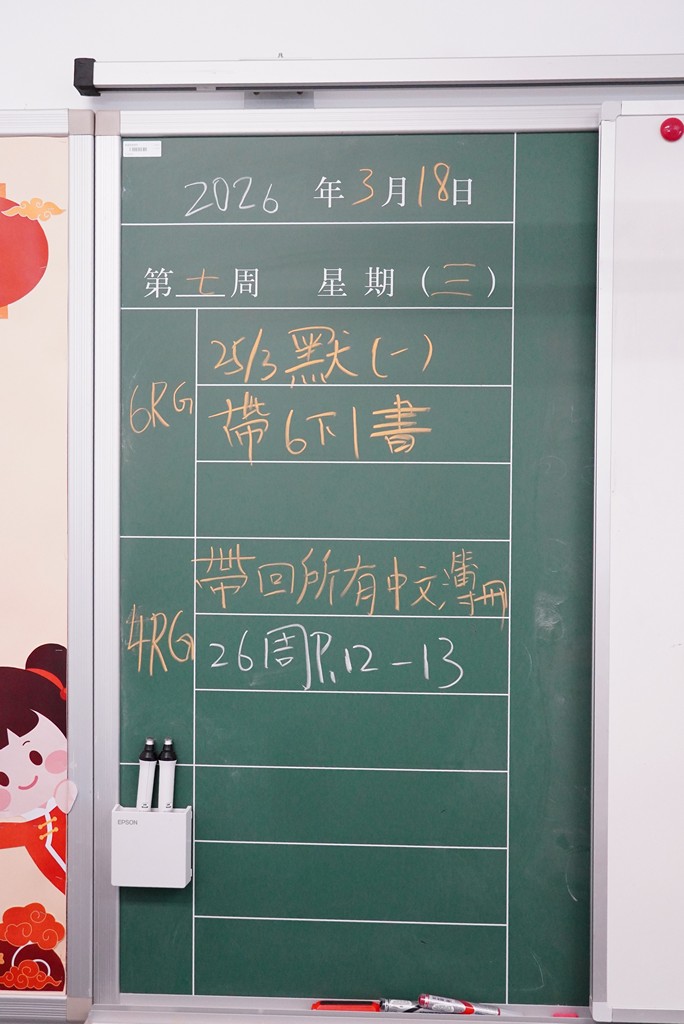 2026 年3月18日
第七周 星期(三)
6RG
25/3 默(一)
帶6下1書
4RG
帶回所有中文簿冊
26周P.12-13
EPSON